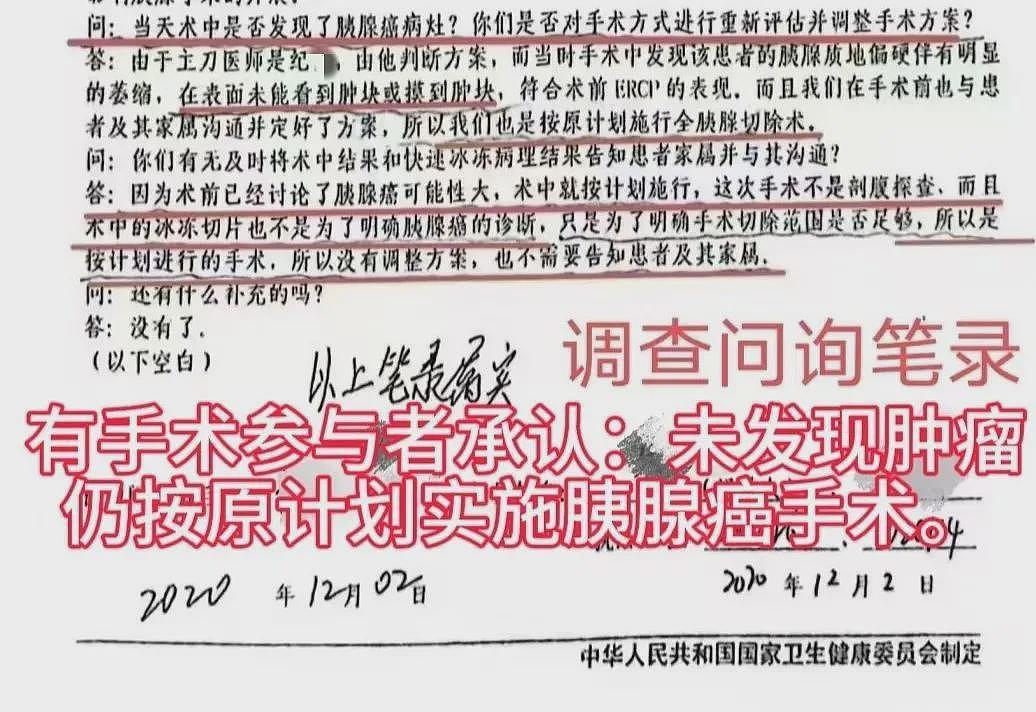 问：当天术中是否发现了胰腺癌病灶？你们是否对手术方式进行重新评估并调整手术方案？
答：由于主刀医师是纪，由他判断方案，而当时手术中发现该患者的胰腺质地偏硬伴有明显
的萎缩，在表面未能看到肿块或摸到肿块，符合术前 ERCP 的表现，而且我们在手术前也与患
者及其家属沟通并定好了方案，所以我们也是按原计划施行全胰腺切除术.
问：你们有无及时将术中结果和快速冰冻病理结果告知患者家属并与其沟通？
答：因为术前已经讨论了胰腺癌可能性大，术中就按计划施行，这次手术不是剖腹探查，而且
术中的冰冻切片也不是为了明确胰腺癌的诊断，只是为了明确手术切除范围是否足够，所以是
按计划进行的手术，所以没有调整方案，也不需要告知患者及其家属.
问：还有什么补充的吗？
答：没有了.
（以下空白）
以上笔录属实
调查问询笔录
有手术参与者承认：未发现肿瘤
仍按原计划实施胰腺癌手术。
2020 年 12月 02日
2020 年 12 月 2 日
中华人民共和国国家卫生健康委员会制定